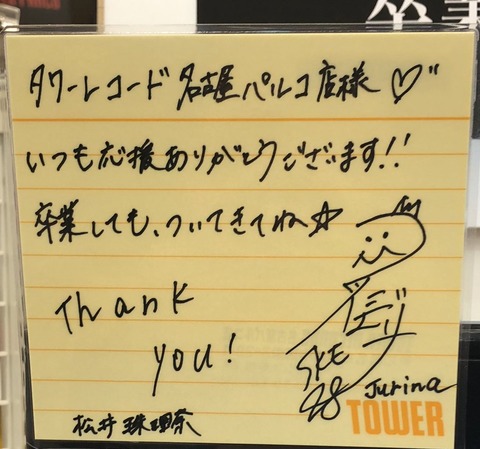 卒業
タワーレコード 名古屋パルコ店様♡"
いつも応援ありがとうございます!!
卒業しても、ついてきてね☆
Thank
you!
SKE
48
Jurina
松井珠理奈
TOWER